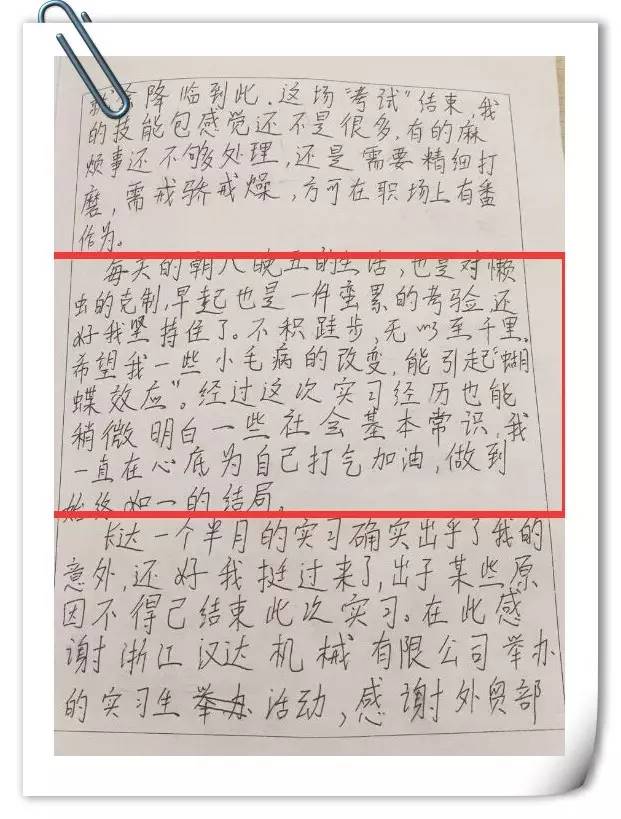 降临到此.这场“考试”结束,我
的技能包感觉还不是很多,有的麻
烦事还不够处理,还是需要精细打
磨,需戒骄戒燥,方可在职场上有番
作为。
每天的朝八晚五的生活,也是对懒
虫的克制,早起也是一件蛮累的考验,还
好我坚持住了。不积跬步,无以至千里。
希望我一些小毛病的改变,能引起“蝴
蝶效应”。经过这次实习经历也能
稍微明白一些社会基本常识,我
一直在心底为自己打气加油,做到
始终如一的结局。
长达一个半月的实习确实出乎了我的
意外,还好我挺过来了,出于某些原
因不得已结束此次实习。在此感
谢浙江汉达机械有限公司举办
的实习生举办活动,感谢外贸部